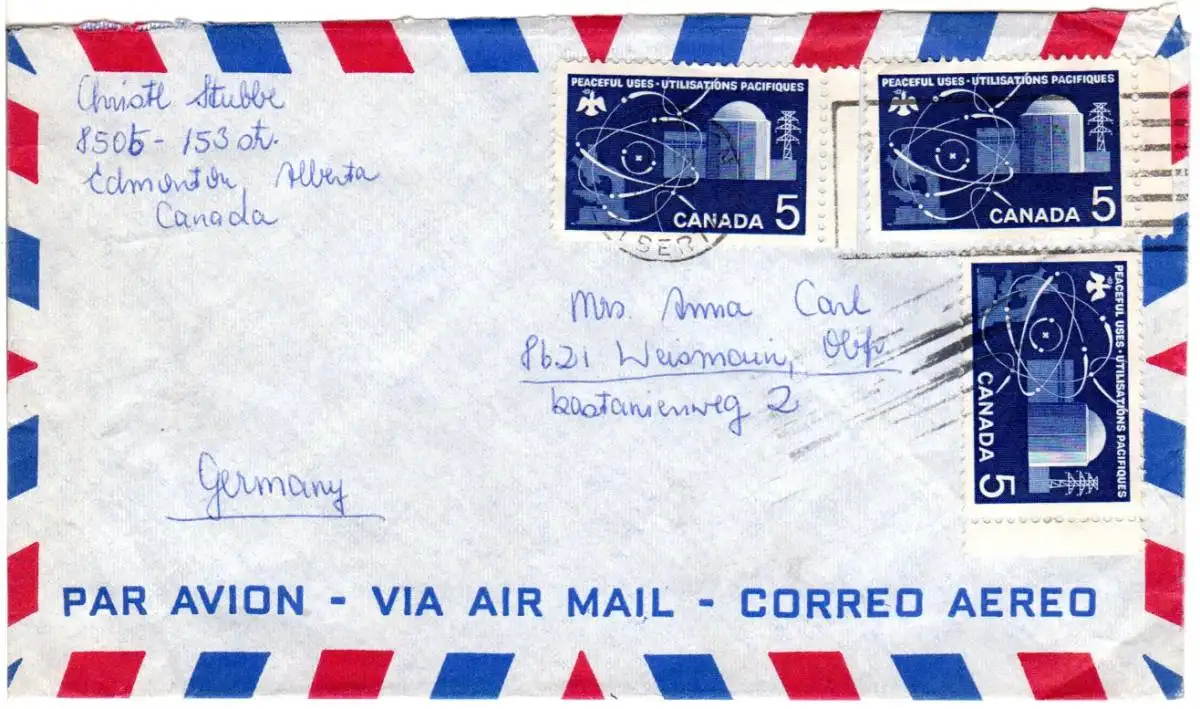 Christl Stubbe
8505 - 153 str.
Edmonton, Alberta
Canada
PEACEFUL USES · UTILISATIONS PACIFIQUES
CANADA 5
PEACEFUL USES · UTILISATIONS PACIFIQUES
CANADA 5
PEACEFUL USES · UTILISATIONS PACIFIQUES
CANADA 5
Mrs. Anna Carl
8621 Weismain, Obfr
Kastanienweg 2
Germany
PAR AVION - VIA AIR MAIL - CORREO AEREO